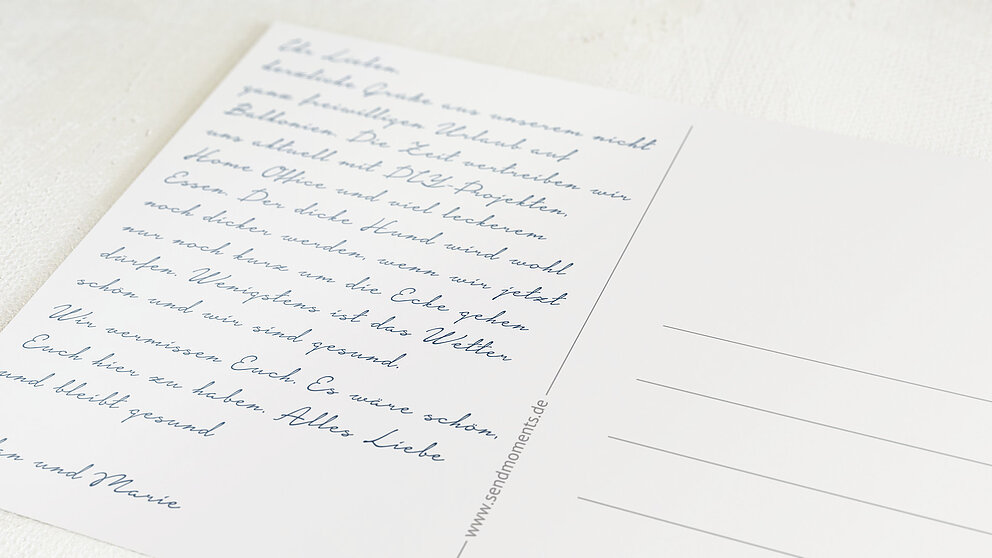 Ihr Lieben,
herzliche Grüße aus unserem nicht
ganz freiwilligen Urlaub auf
Balkonien. Die Zeit vertreiben wir
uns aktuell mit DIY-Projekten,
Home Office und viel leckerem
Essen. Der dicke Hund wird wohl
noch dicker werden, wenn wir jetzt
nur noch kurz um die Ecke gehen
dürfen. Wenigstens ist das Wetter
schön und wir sind gesund.
Wir vermissen Euch. Es wäre schön,
Euch hier zu haben. Alles Liebe
und bleibt gesund
und Marie
www.sendmoments.de